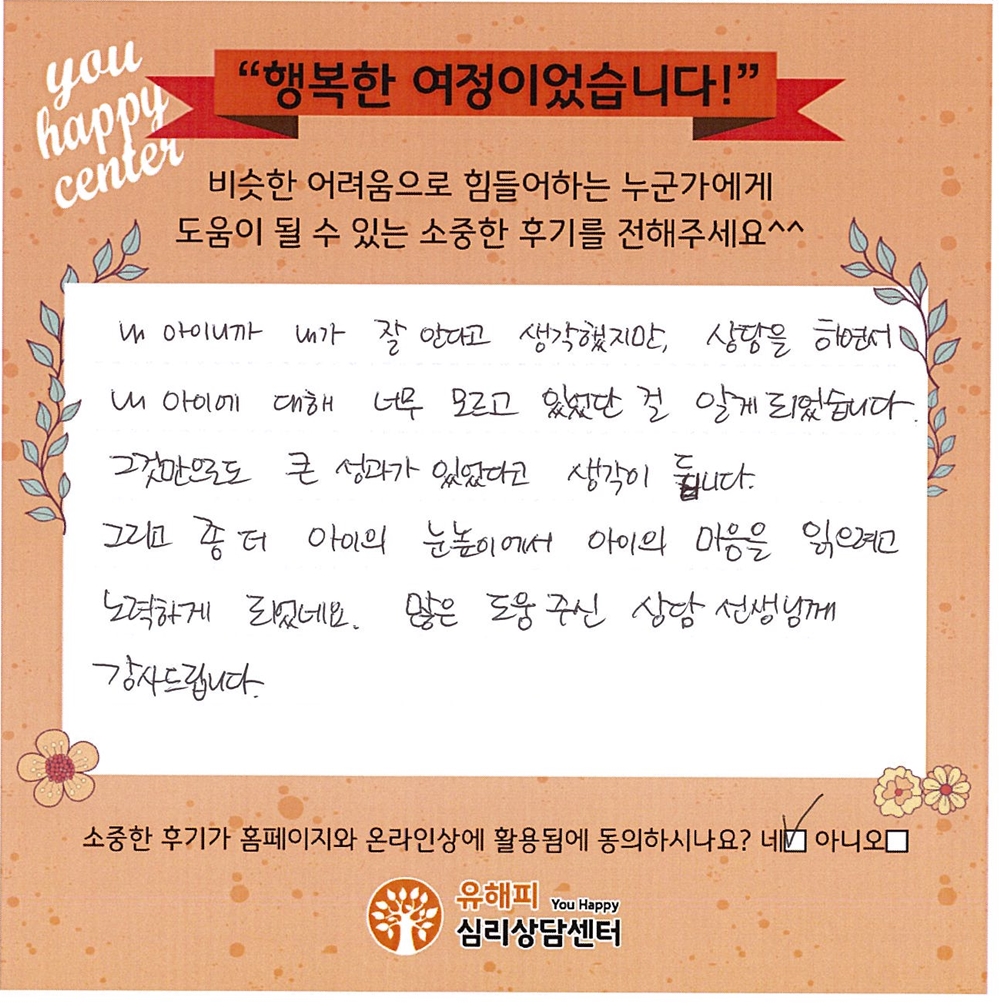 you
happy
center
“행복한 여정이었습니다!”
비슷한 어려움으로 힘들어하는 누군가에게
도움이 될 수 있는 소중한 후기를 전해주세요^^
내 아이니까 내가 잘 안다고 생각했지만, 상담을 하면서
내 아이에 대해 너무 모르고 있었단 걸 알게 되었습니다.
그것만으로도 큰 성과가 있었다고 생각이 듭니다.
그리고 좀 더 아이의 눈높이에서 아이의 마음을 읽으려고
노력하게 되었네요. 많은 도움 주신 상담 선생님께
감사드립니다.
소중한 후기가 홈페이지와 온라인상에 활용됨에 동의하시나요? 네 아니오
유해피 You Happy
심리상담센터